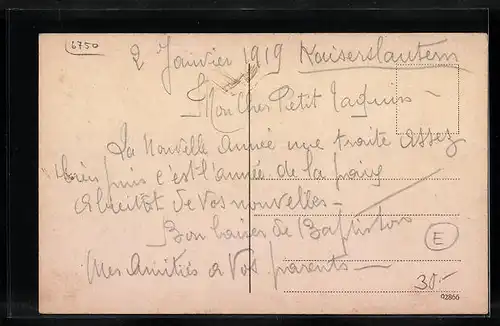 6750
2 Janvier 1919 Kaiserslautern
Mon Cher Petit Jaquins -
La Nouvelle Année me traite assez
bien puis c'est l'année de la paix
A bientôt de vos nouvelles -
Bon baiser de Baptiston
E
Mes Amitiés a vos parents -
30.-
02866